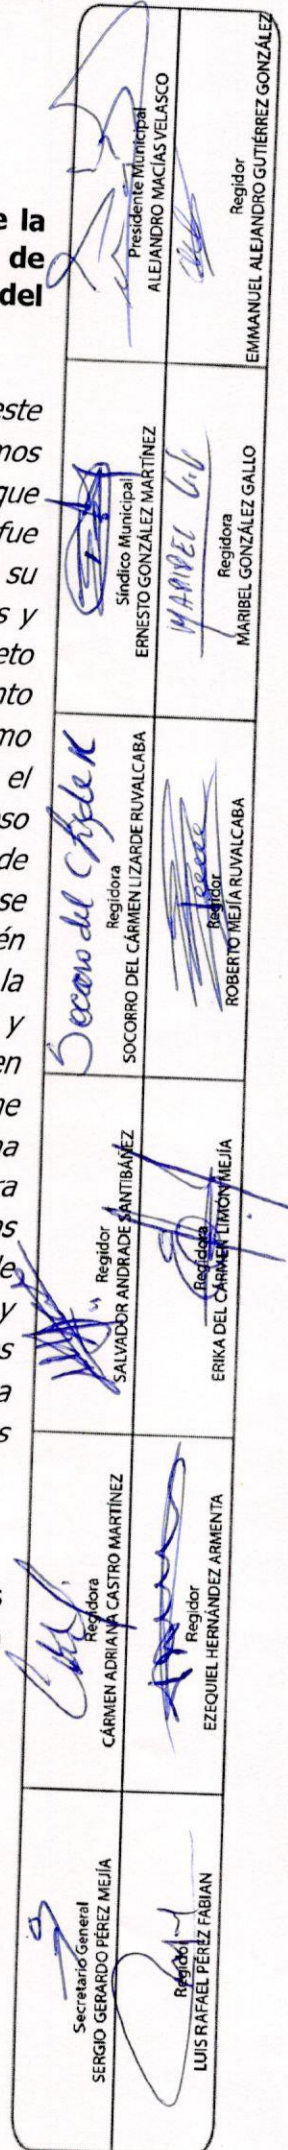 e la
de
del
este
mos
que
fue
su
s y
eto
nto
mo
el
so
de
se
én
la
y
en
ne
na
ra
as
de
y
s
a
s
Presidente Municipal
ALEJANDRO MACÍAS VELASCO
Regidor
EMMANUEL ALEJANDRO GUTIÉRREZ GONZÁLEZ
Síndico Municipal
ERNESTO GONZÁLEZ MARTÍNEZ
MARIBEL G.G
Regidora
MARIBEL GONZÁLEZ GALLO
Socorro del C
Regidora
SOCORRO DEL CÁRMEN LIZARDE RUVALCABA
Regidor
ROBERTO MEJÍA RUVALCABA
Regidor
SALVADOR ANDRADE SANTIBÁÑEZ
Regidora
ERIKA DEL CÁRMEN LIMÓN MEJÍA
Regidora
CÁRMEN ADRIANA CASTRO MARTÍNEZ
Regidor
EZEQUIEL HERNÁNDEZ ARMENTA
Secretario General
SERGIO GERARDO PÉREZ MEJÍA
Regidor
LUIS RAFAEL PÉREZ FABIAN